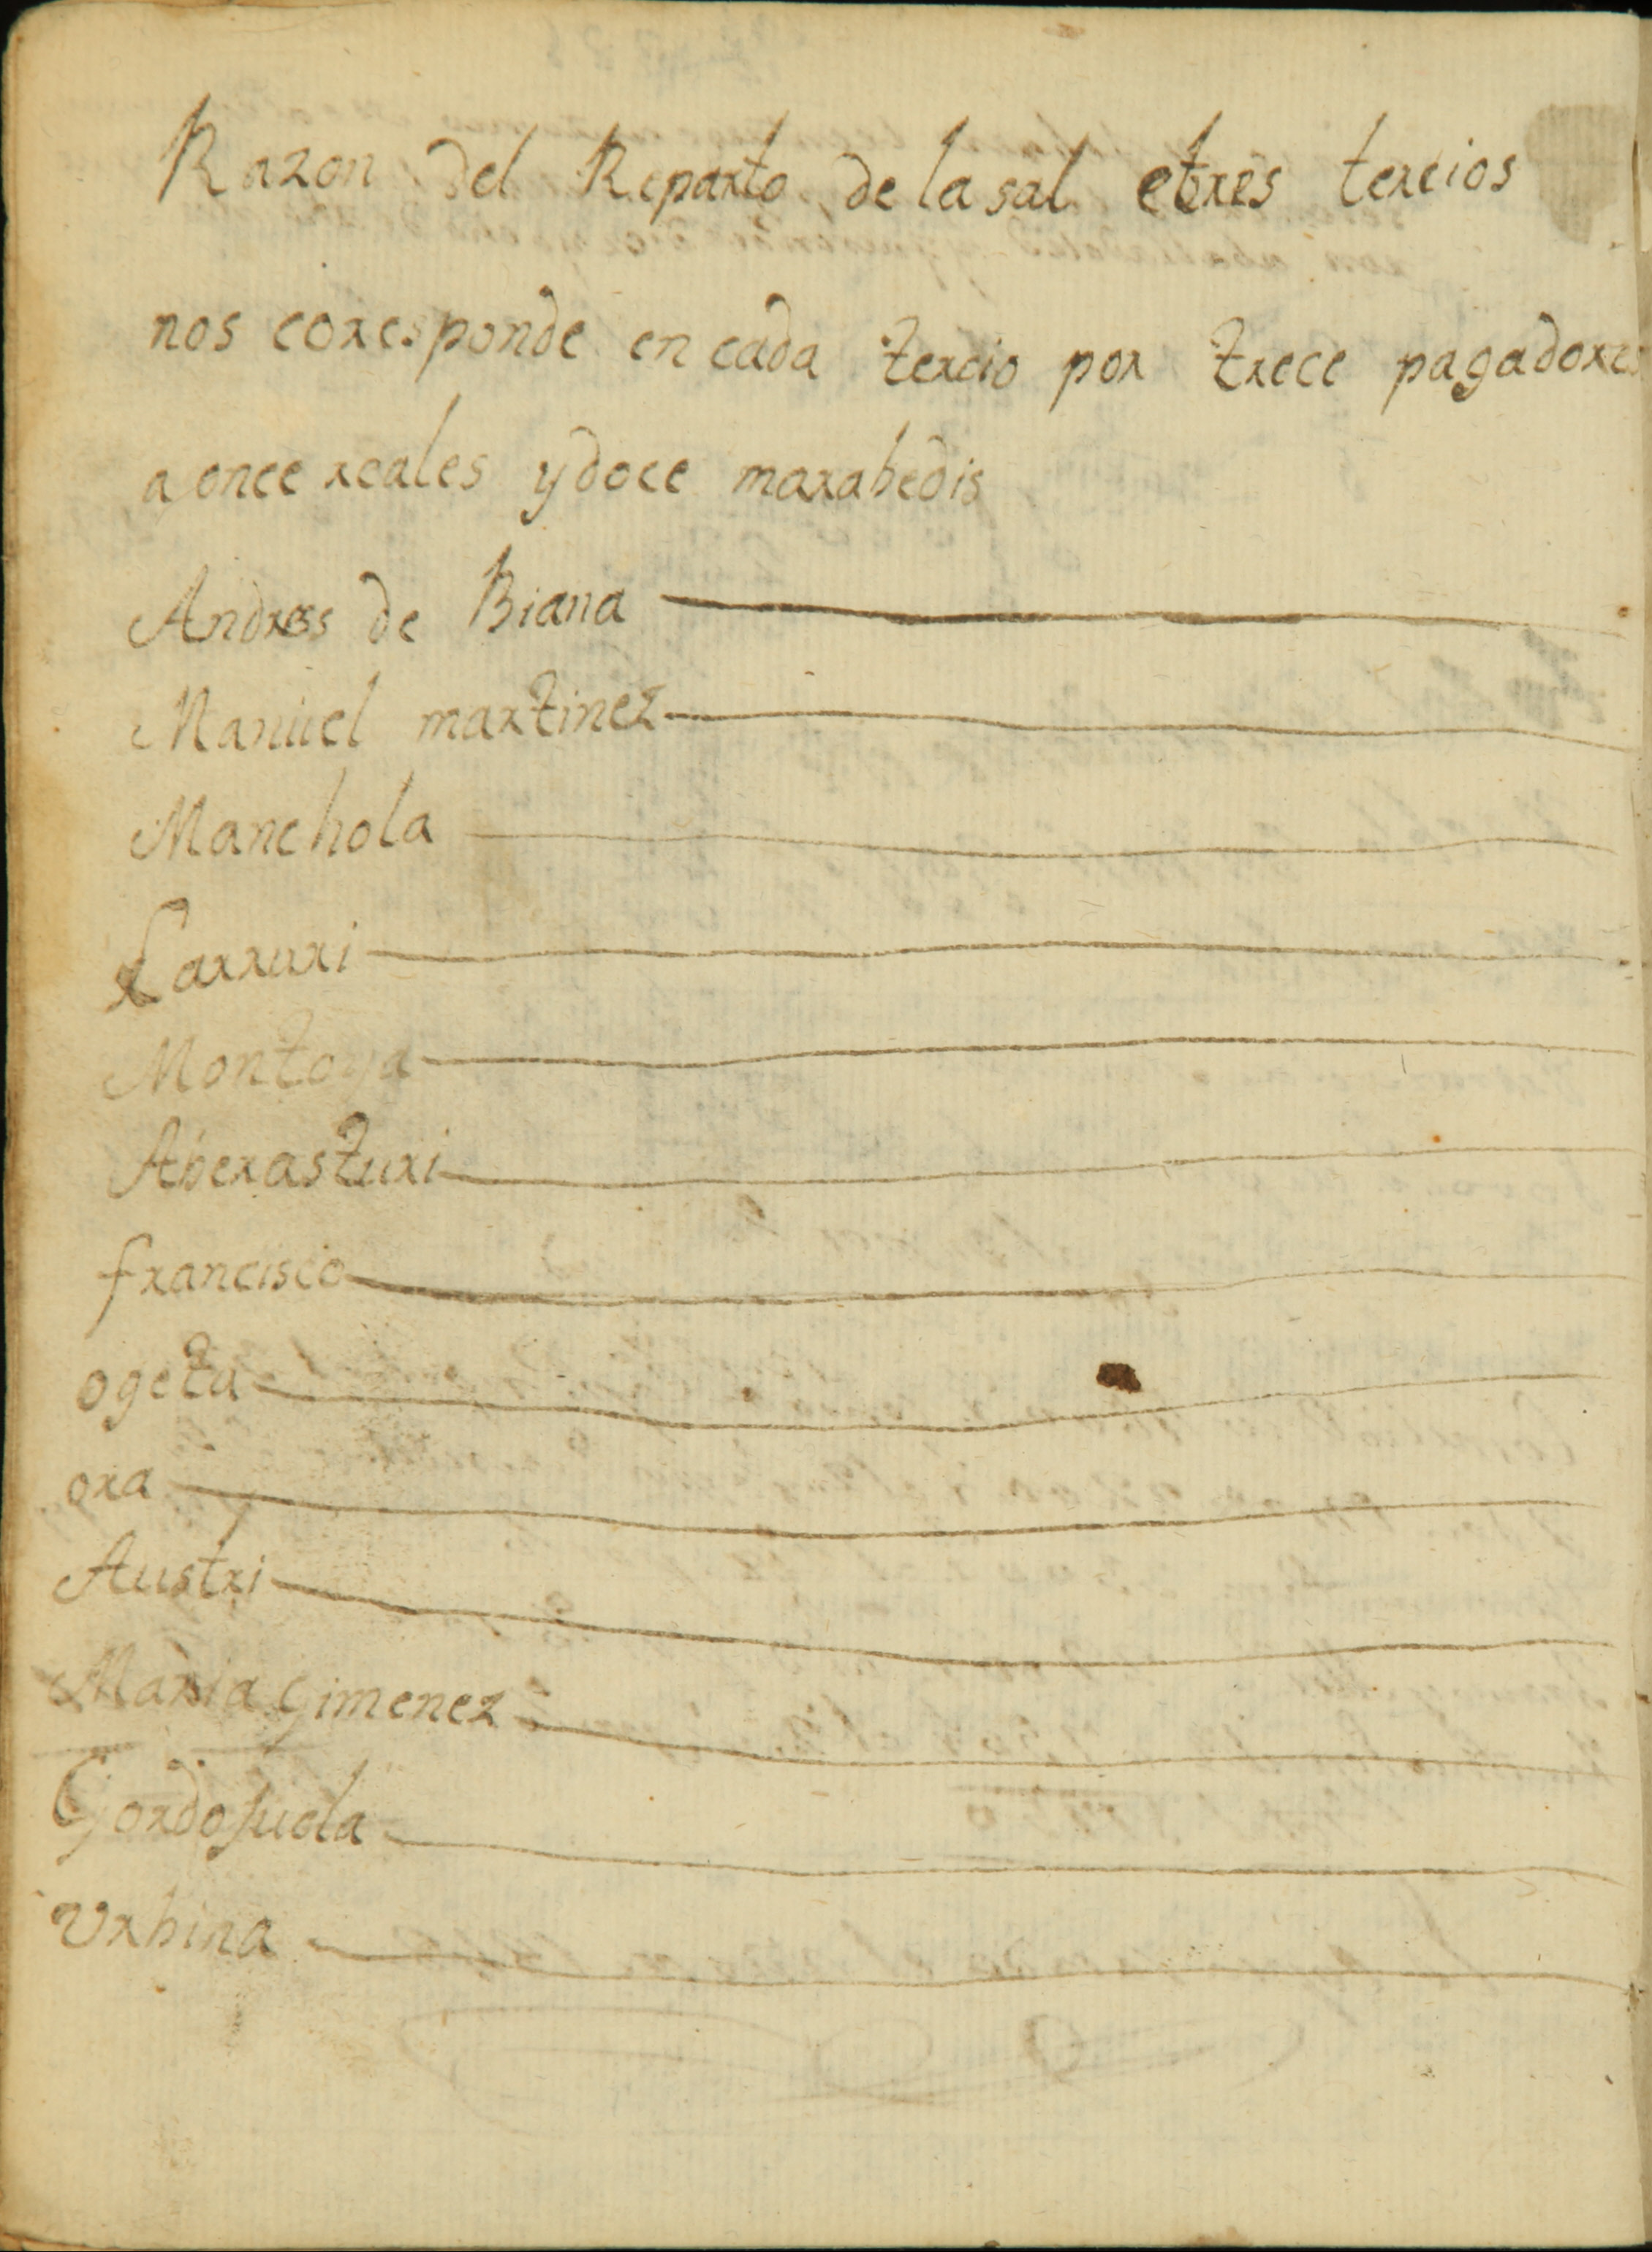 Razon del Reparto de la sal etres tercios
nos coresponde en cada tercio por trece pagadores
a once reales y doce marabedis
Andres de Biana
Manuel martinez
Manchola
Larruri
Montoya
Aberasturi
francisco
ogeta
ora
Austri
Maria Gimenez
Gordosuola
Urbina